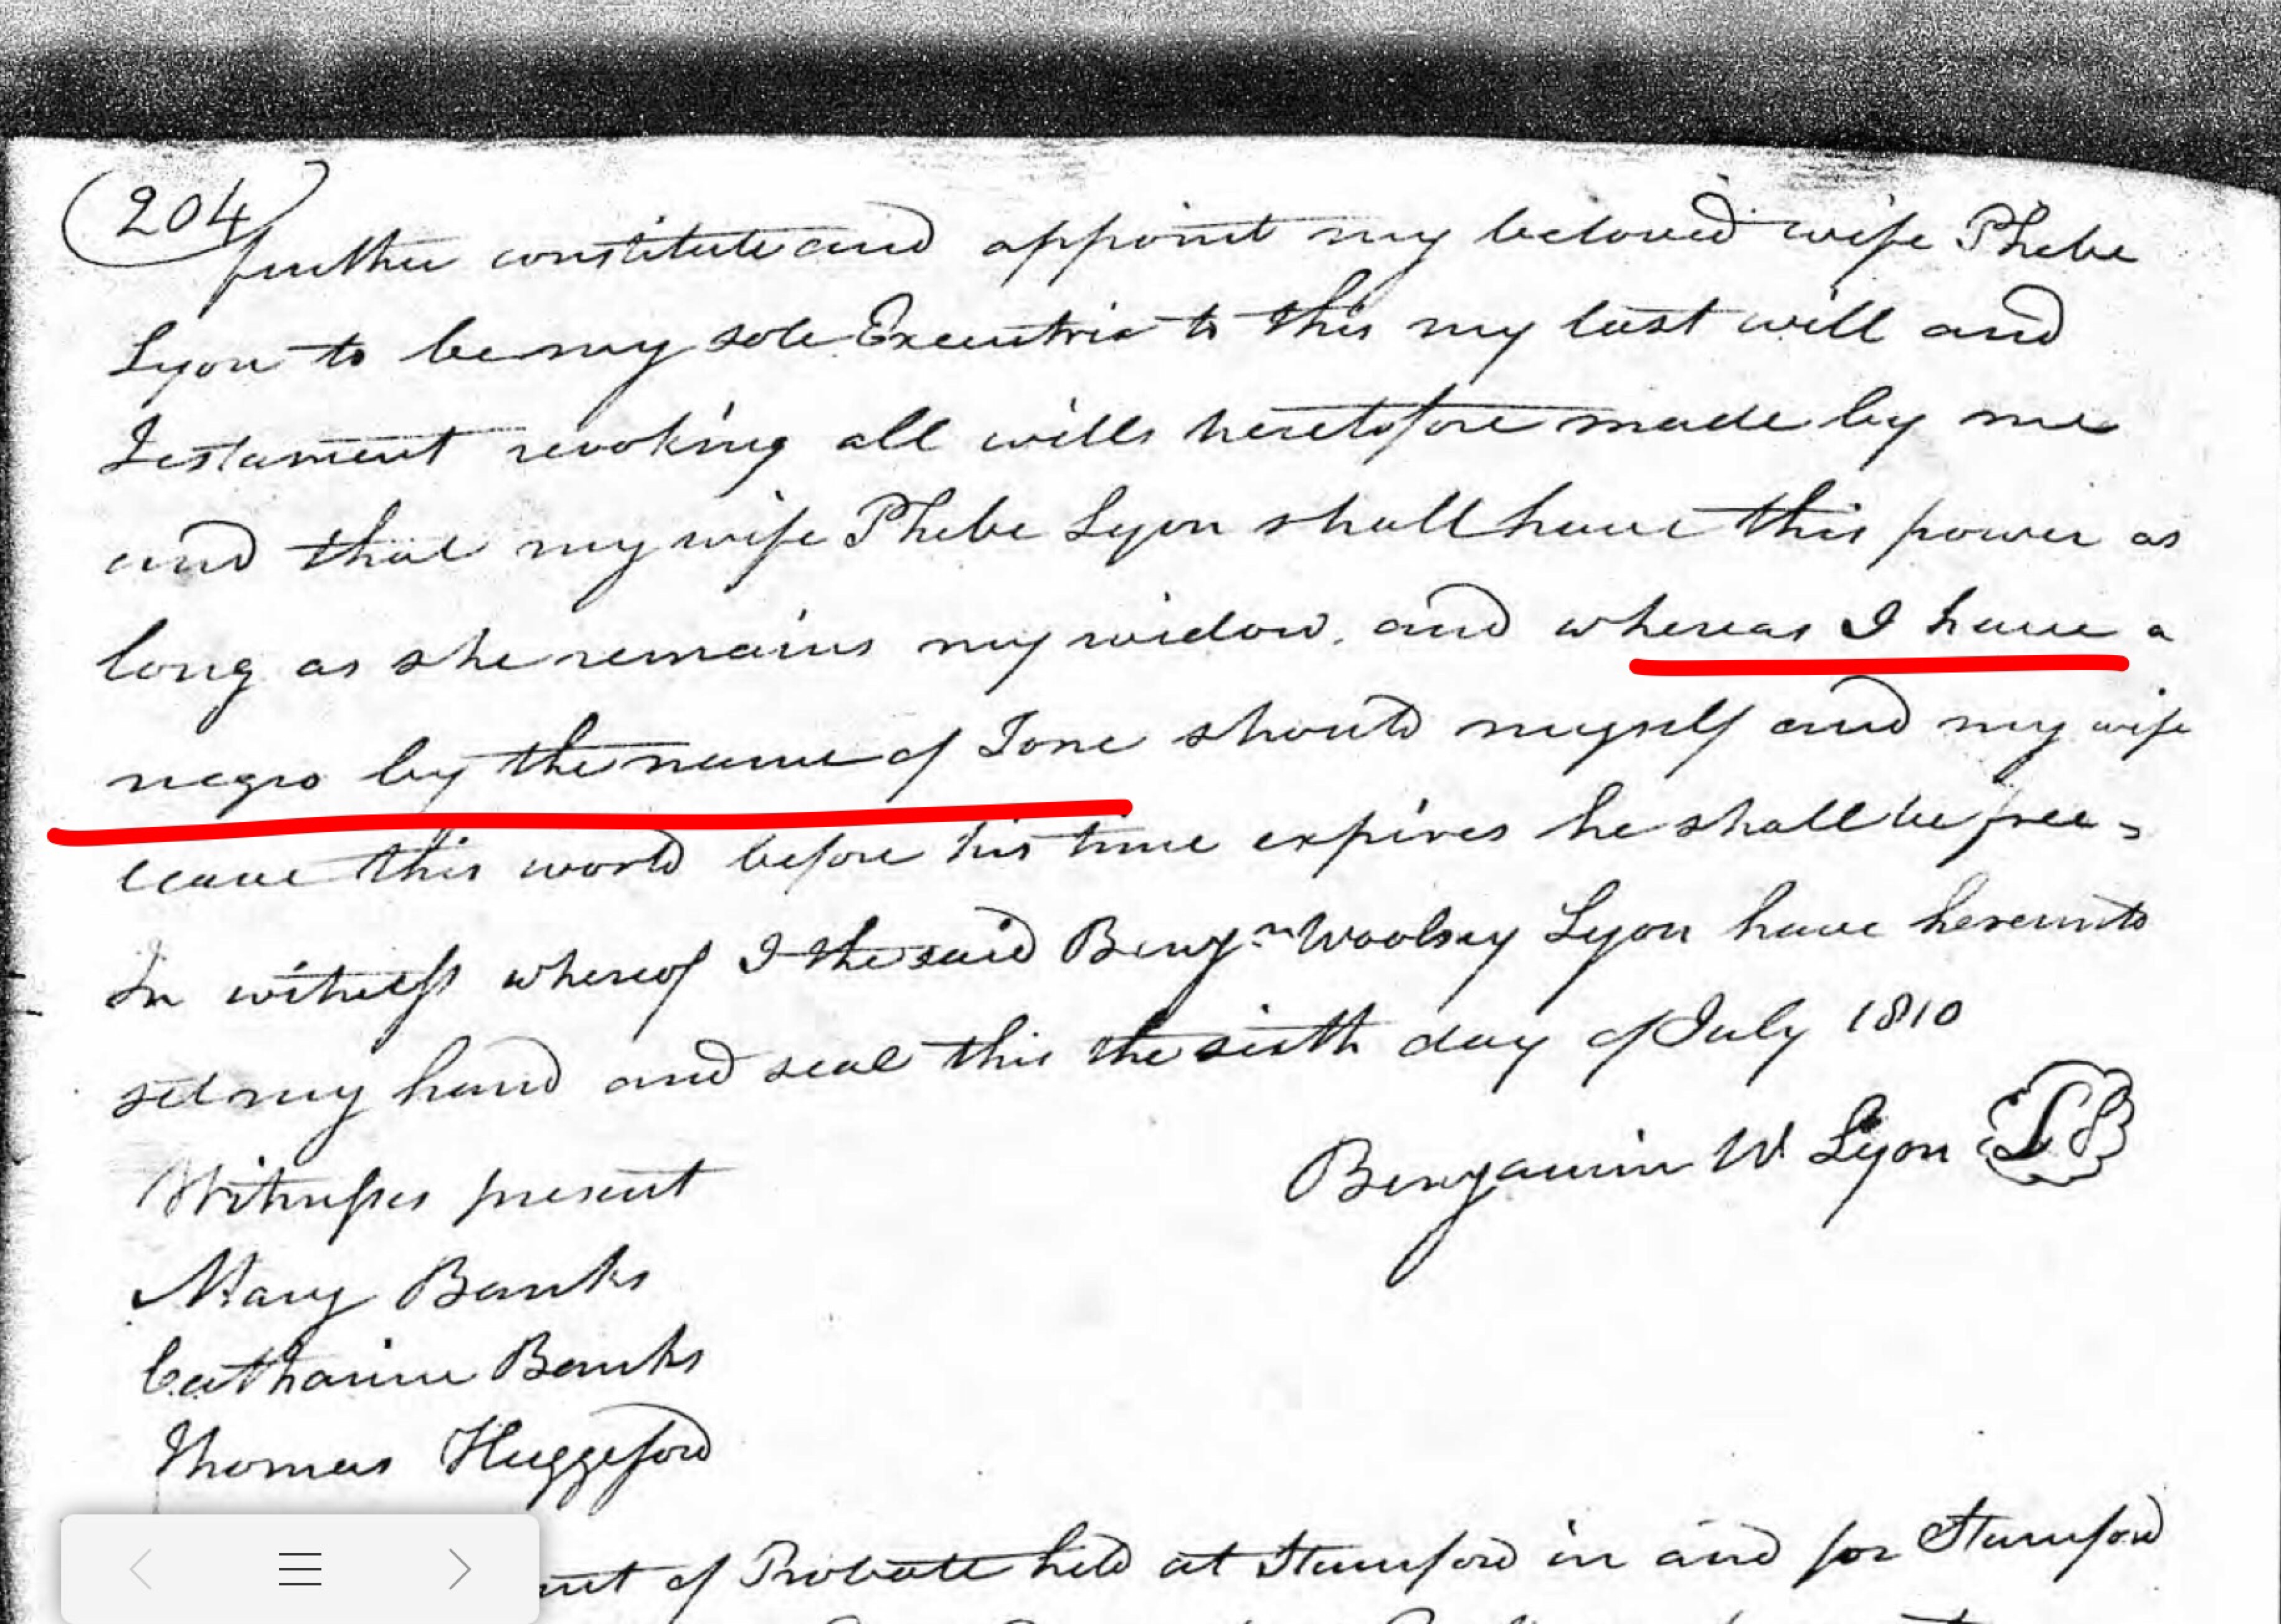 (204)
further constitute and appoint my beloved wife Phebe
Lyon to be my sole Executrix to this my last will and
Testament revoking all wills heretofore made by me
and that my wife Phebe Lyon shall have this power as
long as she remains my widow. and whereas I have a
negro by the name of Tone should myself and my wife
leave this world before his time expires he shall be free =
In witness whereof I the said Benjn Woolsey Lyon have hereunto
set my hand and seal this the sixth day of July 1810
Benjamin W Lyon LS
Witnesses present
Mary Banks
Catharine Banks
Thomas Huggeford
of Probate held at Stamford in and for Stamford